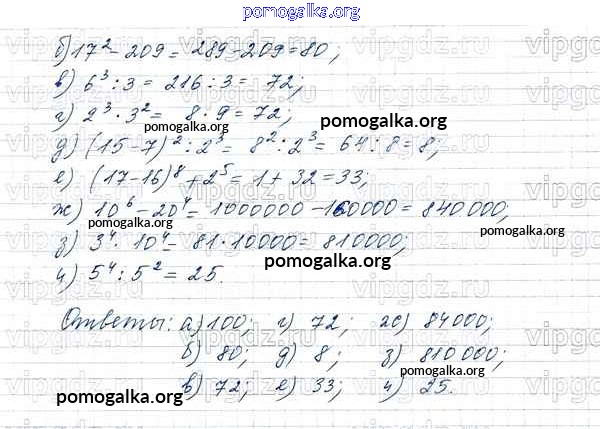 pomogalka.org
б) 17² - 209 = 289 - 209 = 80;
в) 6³ : 3 = 216 : 3 = 72;
г) 2³ · 3² = 8 · 9 = 72;
pomogalka.org pomogalka.org
д) (15 - 7)² : 2³ = 8² : 2³ = 64 : 8 = 8;
е) (17 - 16)⁸ + 2⁵ = 1 + 32 = 33;
ж) 10⁶ - 20⁴ = 1000000 - 160000 = 840 000;
pomogalka.org
з) 3⁴ · 10⁴ = 81 · 10000 = 810000;
pomogalka.org
и) 5⁴ : 5² = 25.
Ответы: а) 100; г) 72; ж) 84000;
б) 80; д) 8; з) 810 000;
в) 72; е) 33; и) 25.
pomogalka.org pomogalka.org
vipgdz.ru